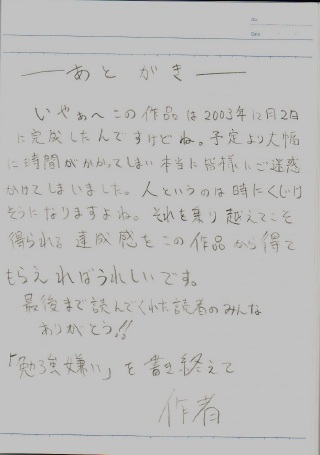 No.
Date
——あとがき——
いやぁ〜この作品は2003年12月2日
に完成したんですけどね。予定より大幅
に時間がかかってしまい本当に皆様にご迷惑
かけてしまいました。人というのは時にくじけ
そうになりますよね。それを乗り越えてこそ
得られる達成感をこの作品から得て
もらえればうれしいです。
最後まで読んでくれた読者のみんな
ありがとう!!
「勉強嫌い」を書き終えて
作者